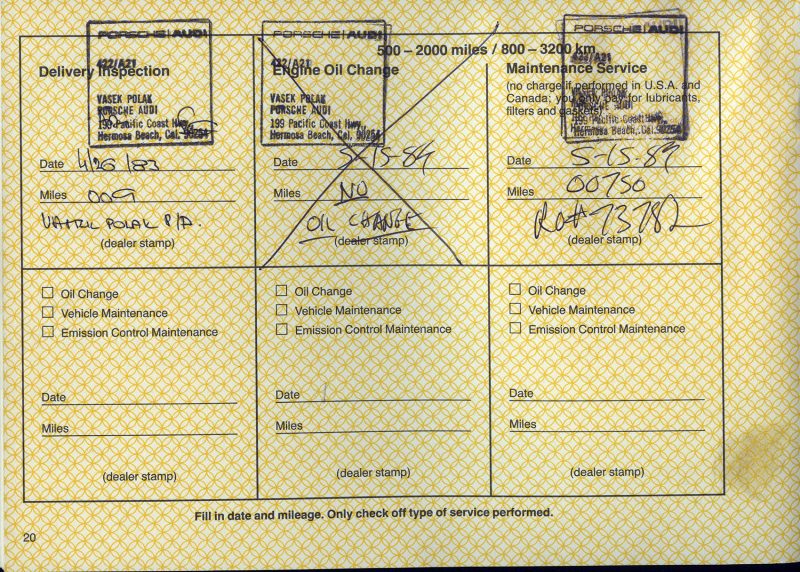 PORSCHE AUDI
422/A21
Delivery Inspection
VASEK POLAK
PORSCHE AUDI
199 Pacific Coast Hwy.
Hermosa Beach, Cal. 90254
Date 4/26/83
Miles 009
VASEK POLAK P/A.
(dealer stamp)
500 – 2000 miles / 800 – 3200 km
PORSCHE AUDI
422/A21
Engine Oil Change
VASEK POLAK
PORSCHE AUDI
199 Pacific Coast Hwy.
Hermosa Beach, Cal. 90254
Date 5-15-84
Miles NO
OIL CHANGE
(dealer stamp)
PORSCHE AUDI
422/A21
Maintenance Service
(no charge if performed in U.S.A. and
Canada; you only pay for lubricants,
filters and gaskets)
VASEK POLAK
PORSCHE AUDI
199 Pacific Coast Hwy.
Hermosa Beach, Cal. 90254
Date 5-15-84
Miles 00750
Ro# 73782
(dealer stamp)
Oil Change
Vehicle Maintenance
Emission Control Maintenance
Date
Miles
(dealer stamp)
Oil Change
Vehicle Maintenance
Emission Control Maintenance
Date
Miles
(dealer stamp)
Oil Change
Vehicle Maintenance
Emission Control Maintenance
Date
Miles
(dealer stamp)
Fill in date and mileage. Only check off type of service performed.
20